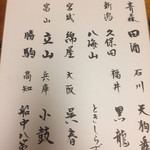 青森 田酒
石川 天狗舞
新潟 久保田
八海山
福井 黒龍
ときしらず
宮城 綿屋
大阪 呉春
富山 立山
兵庫 小鼓
勝駒
高知 船中八策